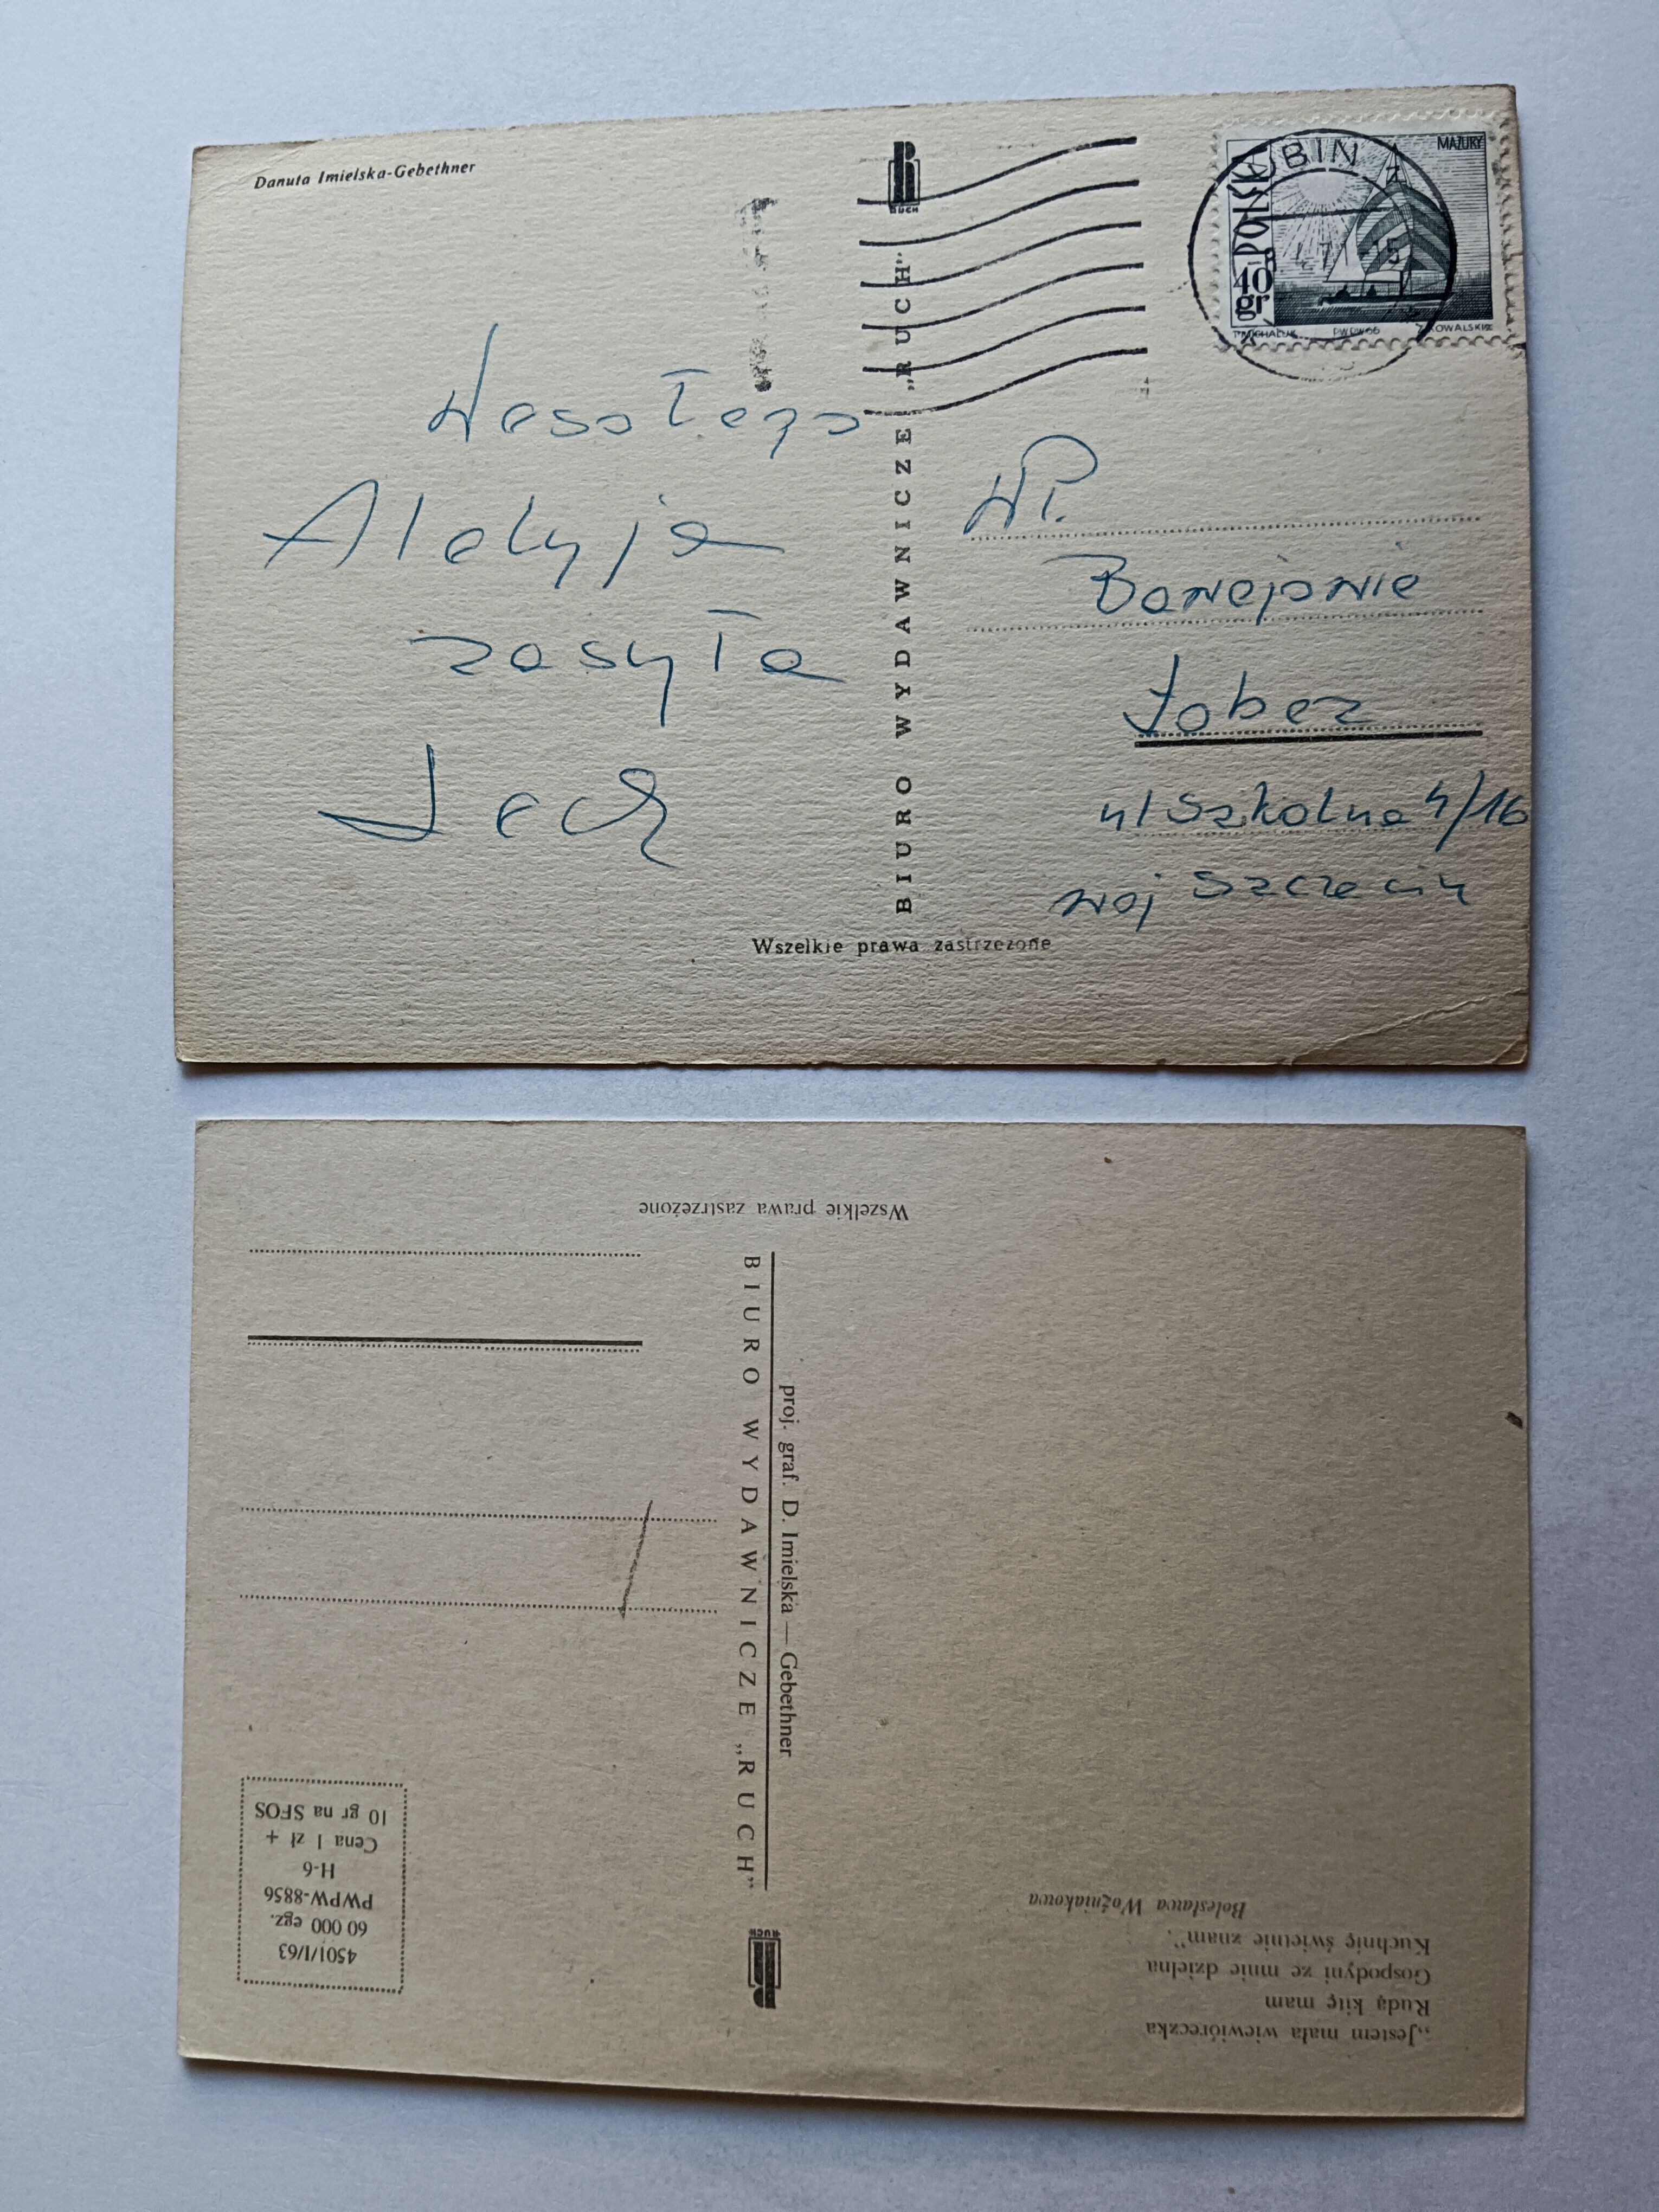 Danuta Imielska-Gebethner
RUCH
BIURO WYDAWNICZE „RUCH"
Wszelkie prawa zastrzeżone
Wesołego
Aleluja
zasyła
Lech
LUBIN
POLSKA
40 gr
MAZURY
PWPW 66
WP.
Łobez
ul Szkolna 4/16
woj Szczecin
Wszelkie prawa zastrzeżone
BIURO WYDAWNICZE „RUCH"
proj. graf. D. Imielska — Gebethner
RUCH
„Jestem mała wiewióreczka
Rudą kitę mam
Gospodyni ze mnie dzielna
Kuchnię świetnie znam".
Bolesława Woźniakowa
4501/I/63
60 000 egz.
PWPW-8856
H-6
Cena 1 zł +
10 gr na SFOS